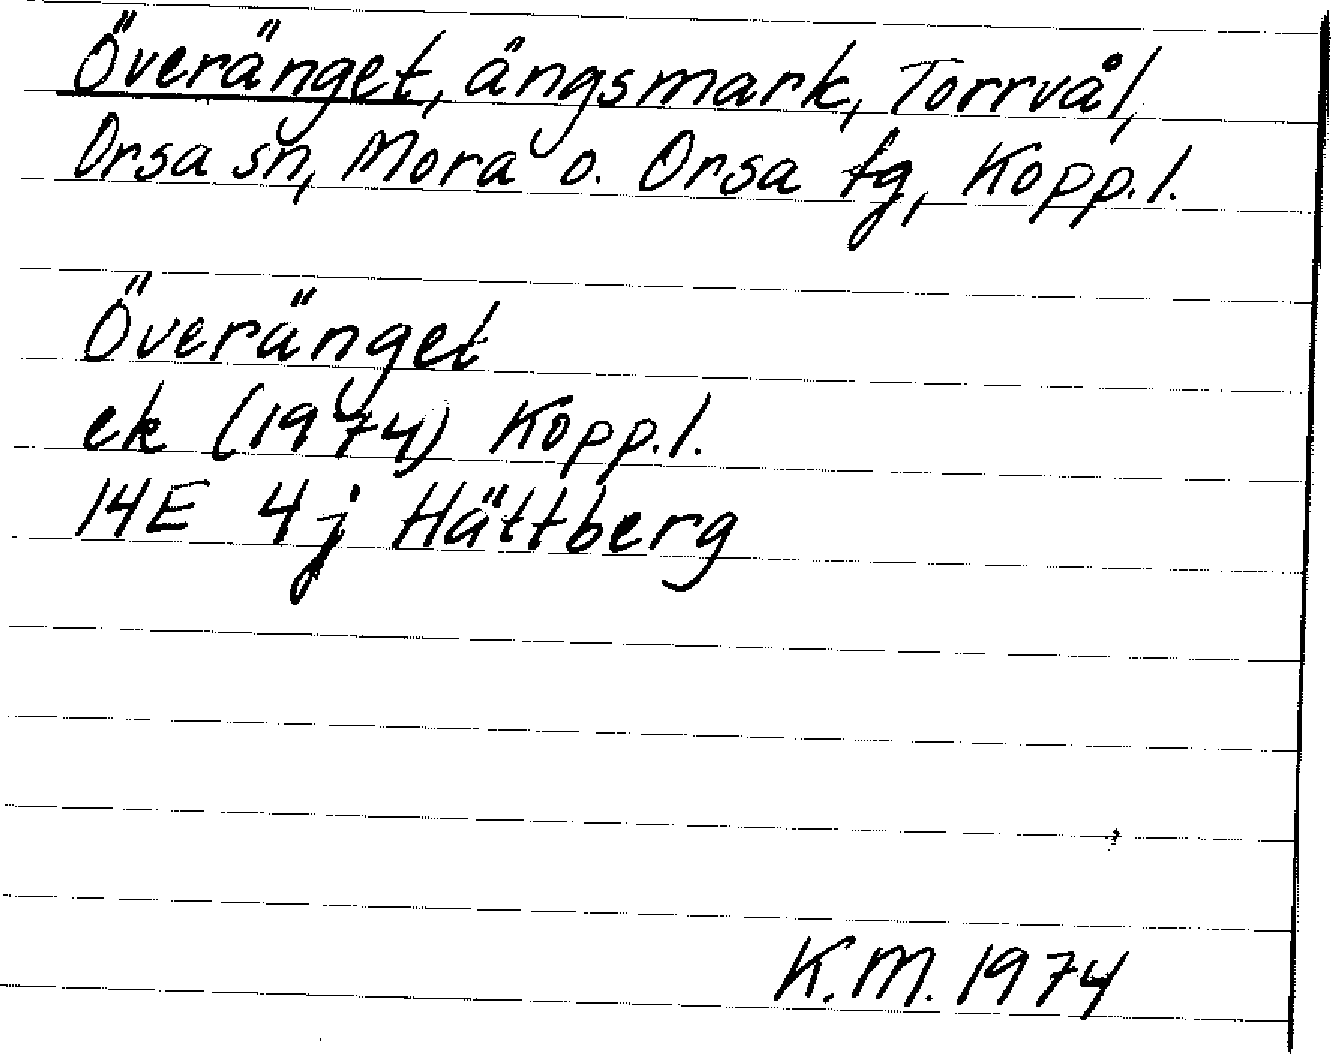 Överänget, ängsmark, Torrvål,
Orsa sn, Mora o. Orsa tg, Kopp. l.
Överänget
ek (1974) Kopp. l.
14E 4j Hättberg
K.M. 1974